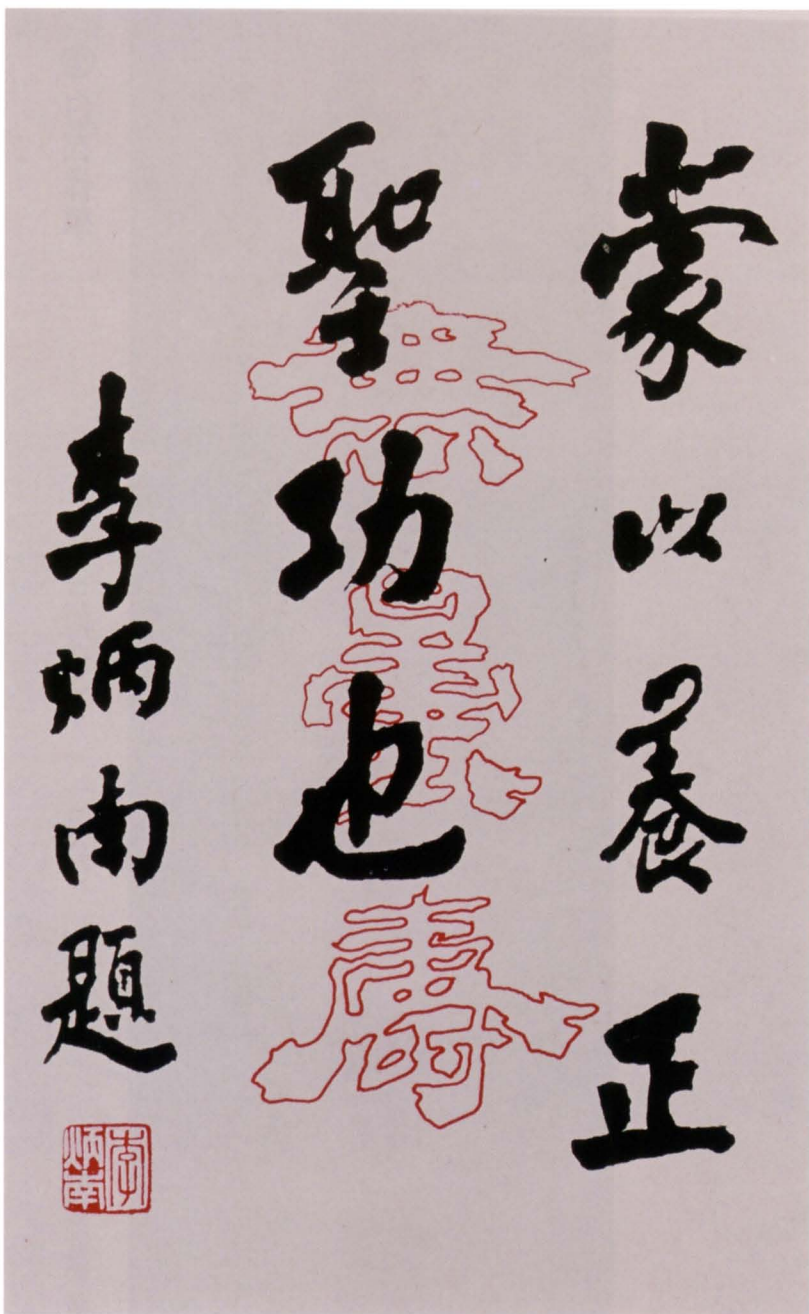 蒙以養正
聖功也
無量壽
李炳南題
李炳南